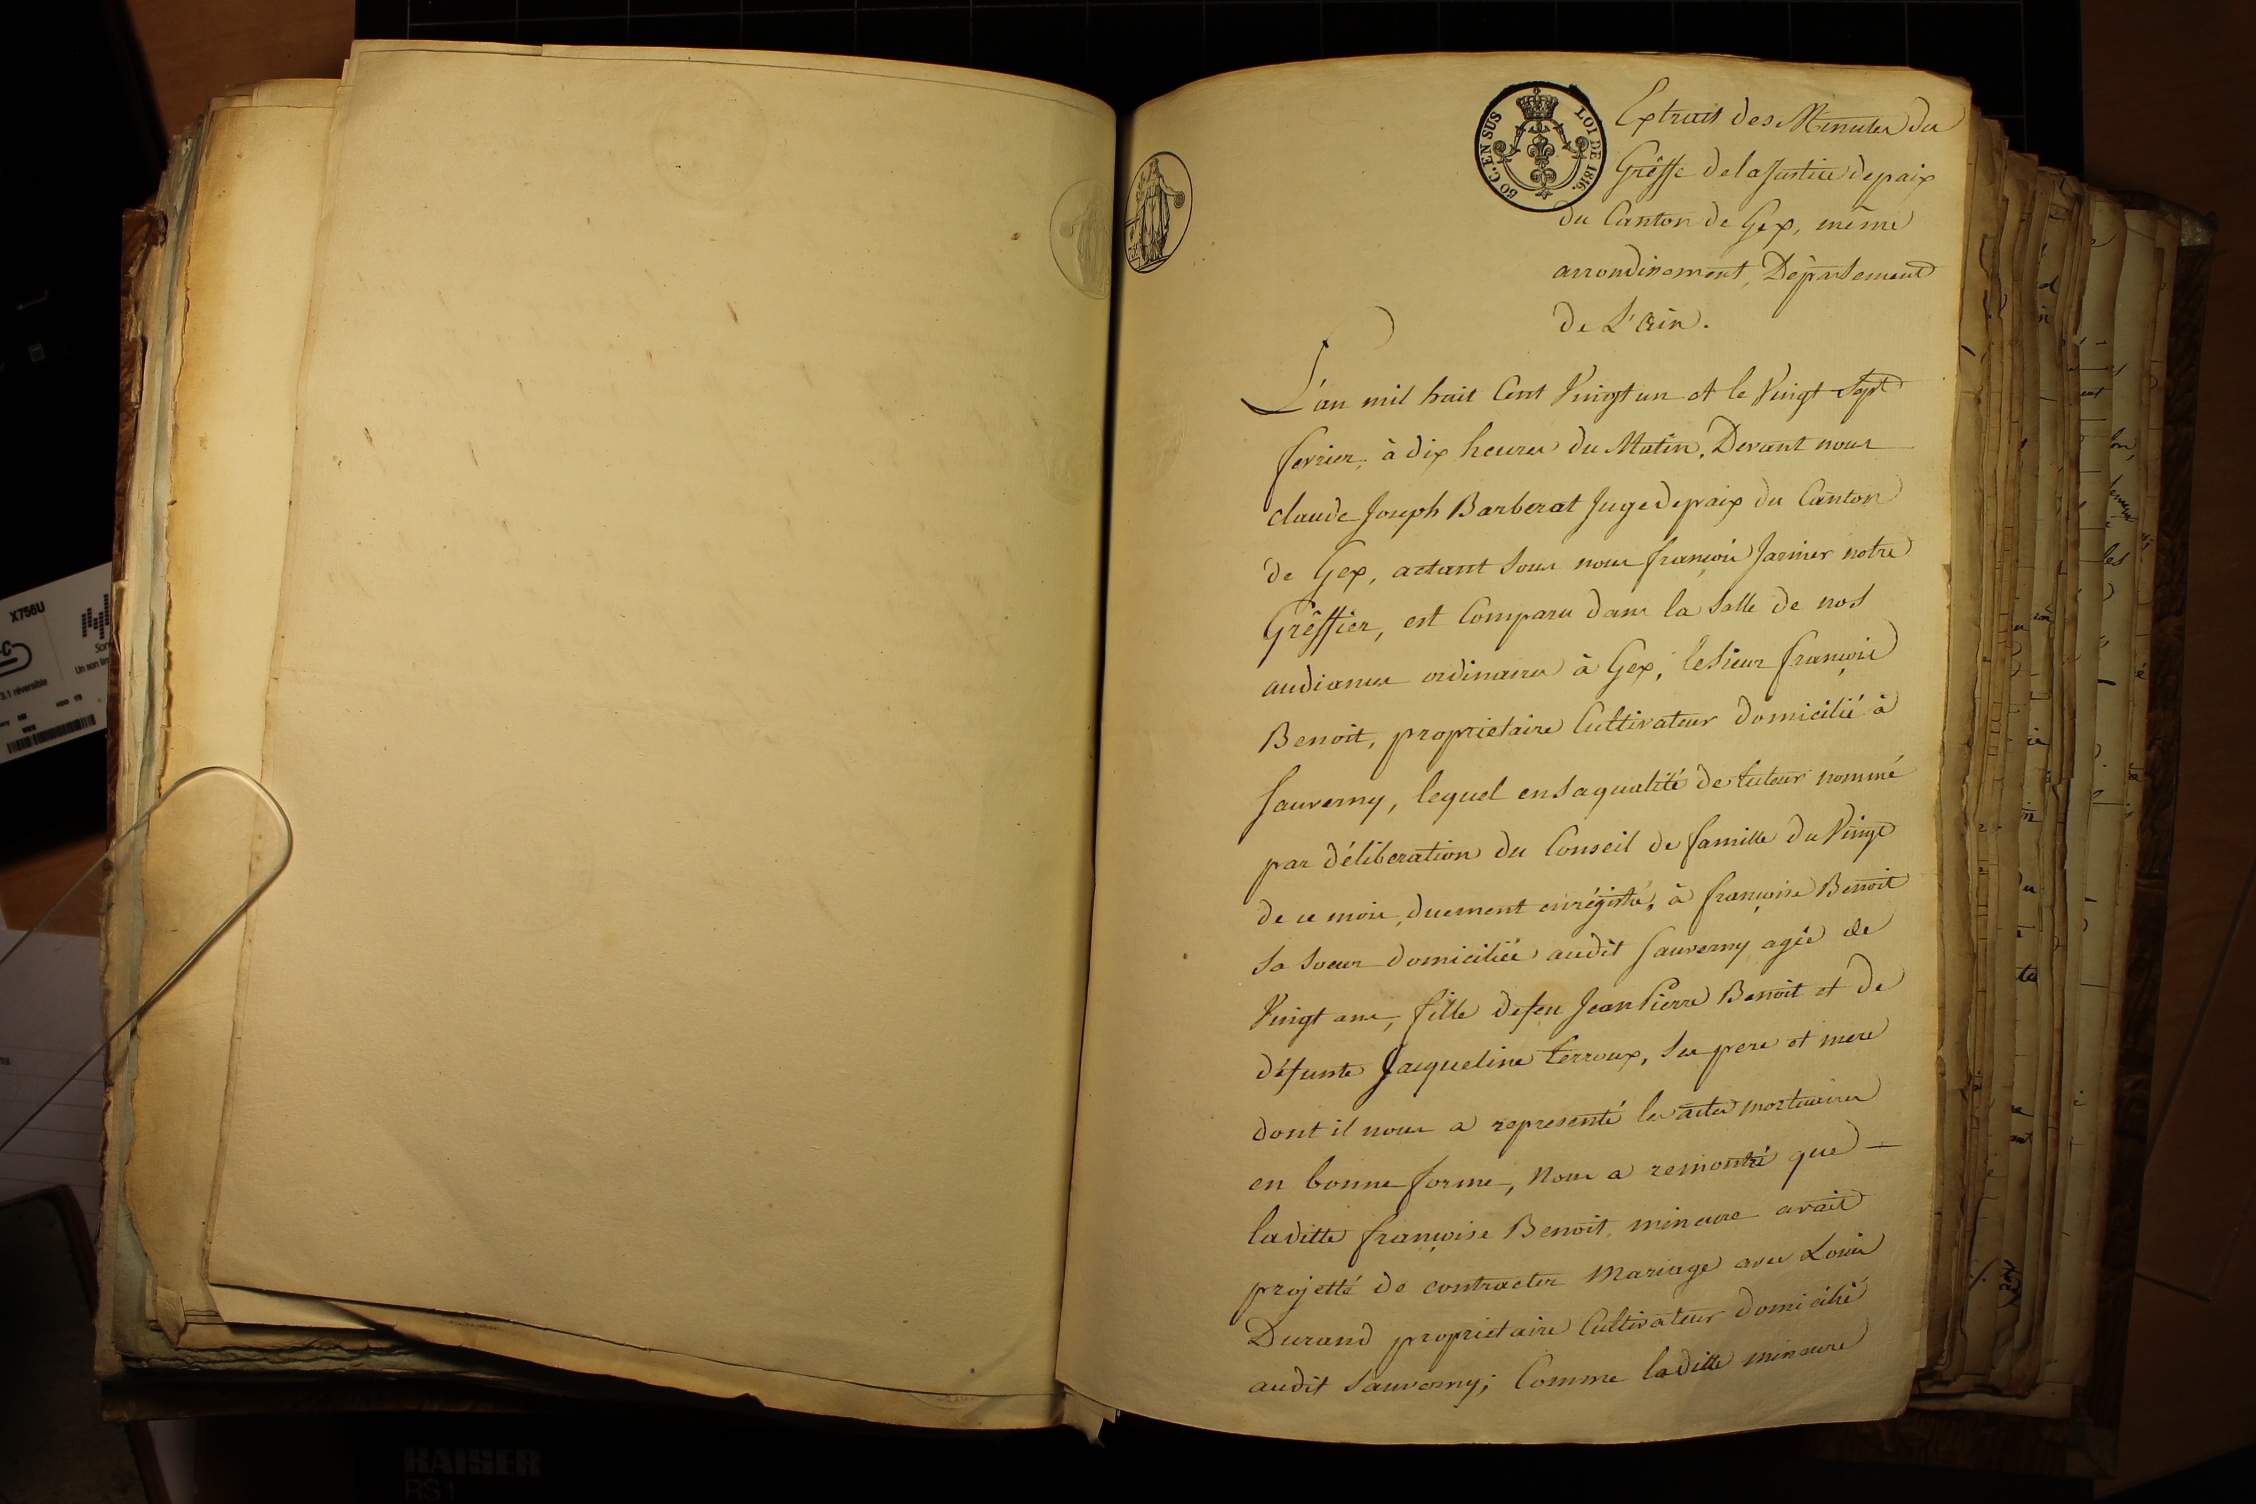 X756U
Un son
3.1 réversible
50 C. EN SUS
LOI DE 1816.
Extrait des Minutes du
Grêffe de la Justice de paix
du Canton de Gex, même
arrondissement, Département
de L'ain.
L'an mil huit Cent Vingt un et le Vingt Sept
fevrier, à dix heures du Matin, Devant nous
claude Joseph Barberat Juge de paix du Canton
de Gex, actant sous nous françois Jarnier notre
Grêffier, est Comparu dans la salle de nos
audiances ordinaires à Gex, le sieur françois
Benoit, proprietaire Cultivateur domicilié à
Sauverny, lequel en sa qualité de tuteur nommé
par déliberation du Conseil de famille du Vingt
de ce mois, duement enrégistré, à françoise Benoit
sa soeur domiciliée audit Sauverny agée de
Vingt ans, fille de feu Jean Pierre Benoit et de
défunte Jacqueline terroux, ses pere et mere
dont il nous a representé les actes mortuaires
en bonne forme, Nous a remontré que —
laditte françoise Benoit mineure avait
projetté de contracter Mariage avec Louis
Durand proprietaire Cultivateur domicilié
audit Sauverny; Comme laditte mineure
KAISER
RS 1